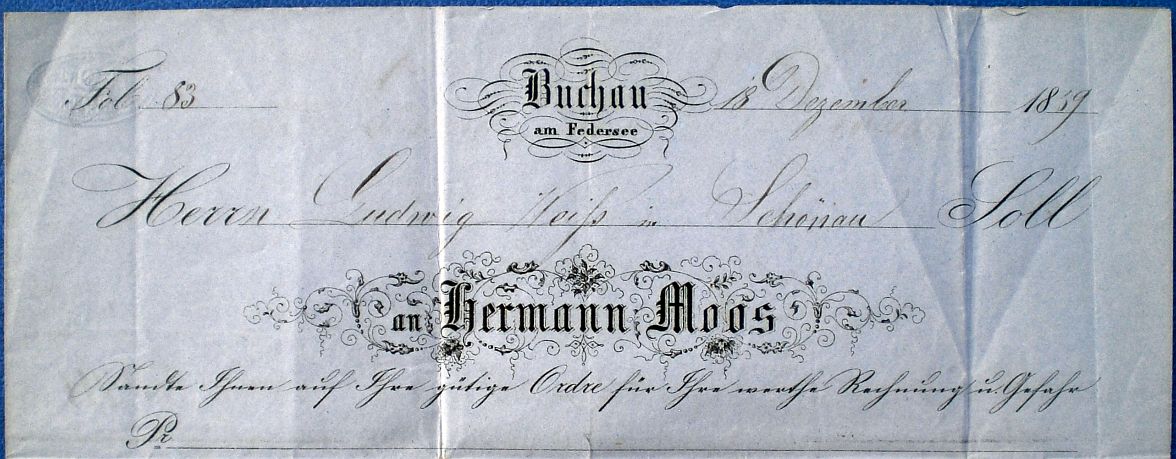 Fol. 83 Buchau 18 Dezember 1859
am Federsee
Herrn Ludwig Weiß in Schönau Soll
an Hermann Moos
Sandte Ihnen auf Ihre gütige Ordre für Ihre werthe Rechnung u. Gefahr
Pr.